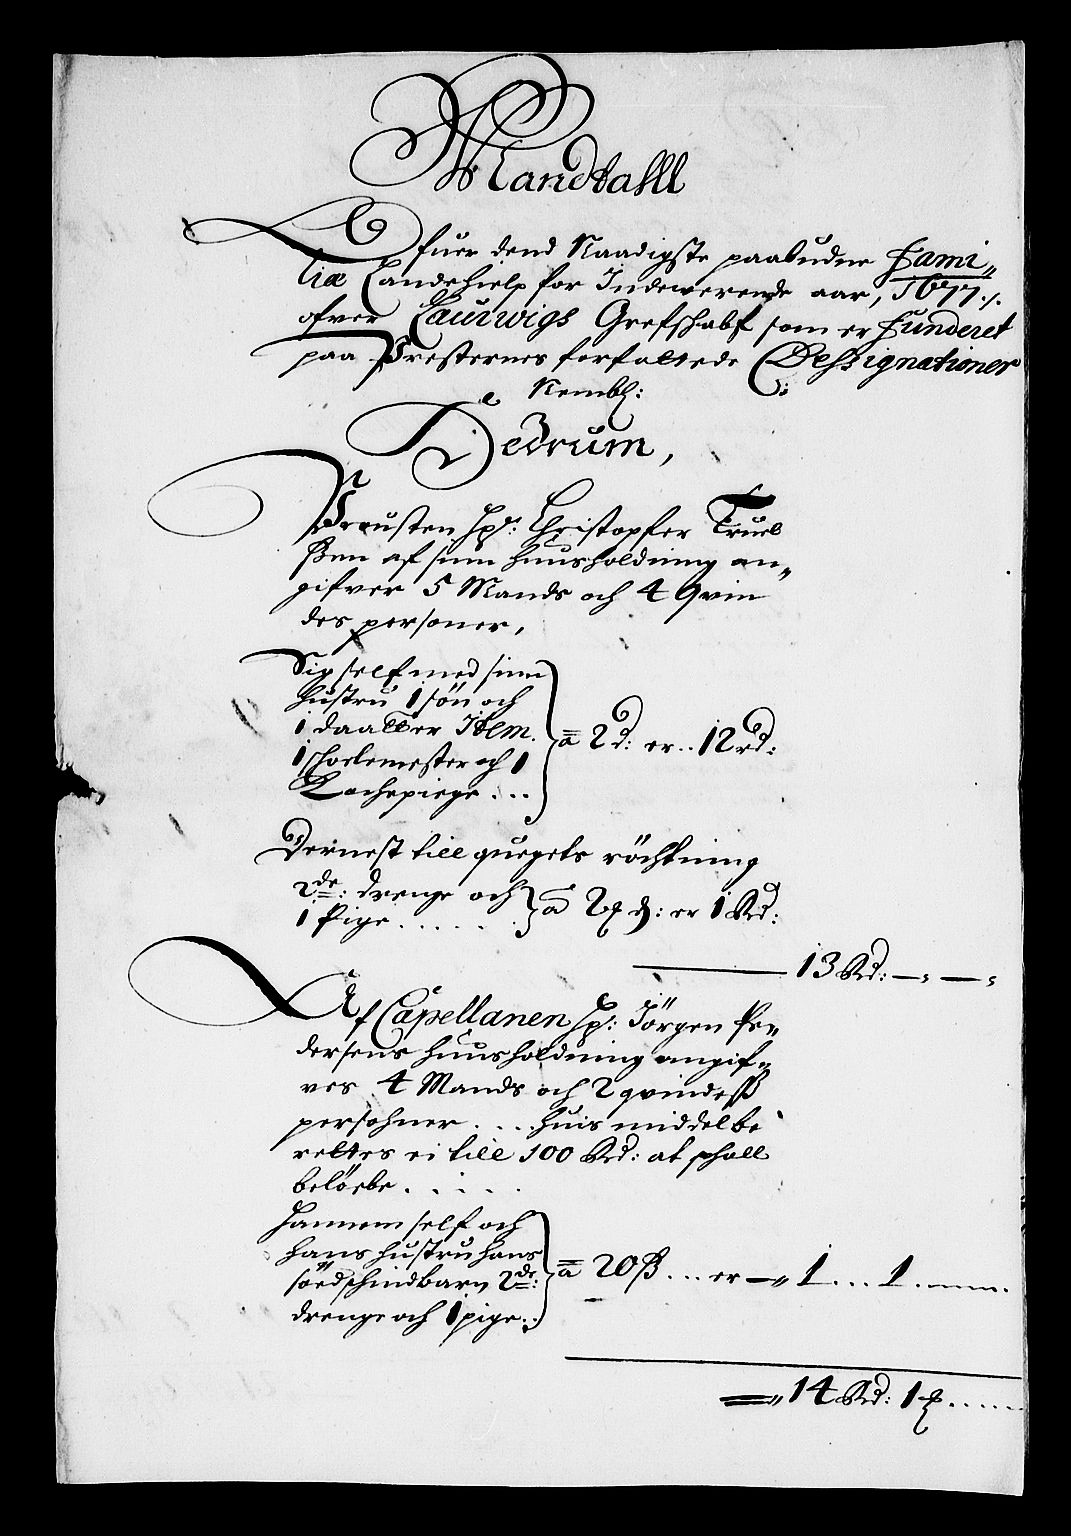 Mandtalll
Ofuer dend Naadigste paabudne Fami„
liæ Landehielp for Indewerende aar, 1677 ./.
ofver Laurwigs Grefschabf som er Funderet
paa Presternes forfattede Dessignationer
Nembl:
Tiedrum,
Prousten Hr: Christopfer Truel
ßen af sinn huusholdning an„
gifver 5 Mands och 4 Qvin
des personer,
Sig self med sinn
hustru 1 søn och
1 daatter Item
1 scholemester och 1
Kochepiege ...
a 2 d: er .. 12 rd:
Dernest till quegets röchtning
2de: drenge och
1 Pige .....
a 2 ꝣ d: er 1 Rd:
13 Rd: — —
Af Capellanen Hr: Jörgen Pe„
dersens huusholdning angif„
ves 4 Mands och 2 qvindeß
persohner .... huis middel be
rettes ei till 100 Rd: at schall
beløebe .....
Hannem self och
hans hustru hans
södschindbarn, 2de:
drenge och 1 pige ..
a 20 ß ... er — 1 ... 1 ......
14 Rd: 1 ꝣ .....